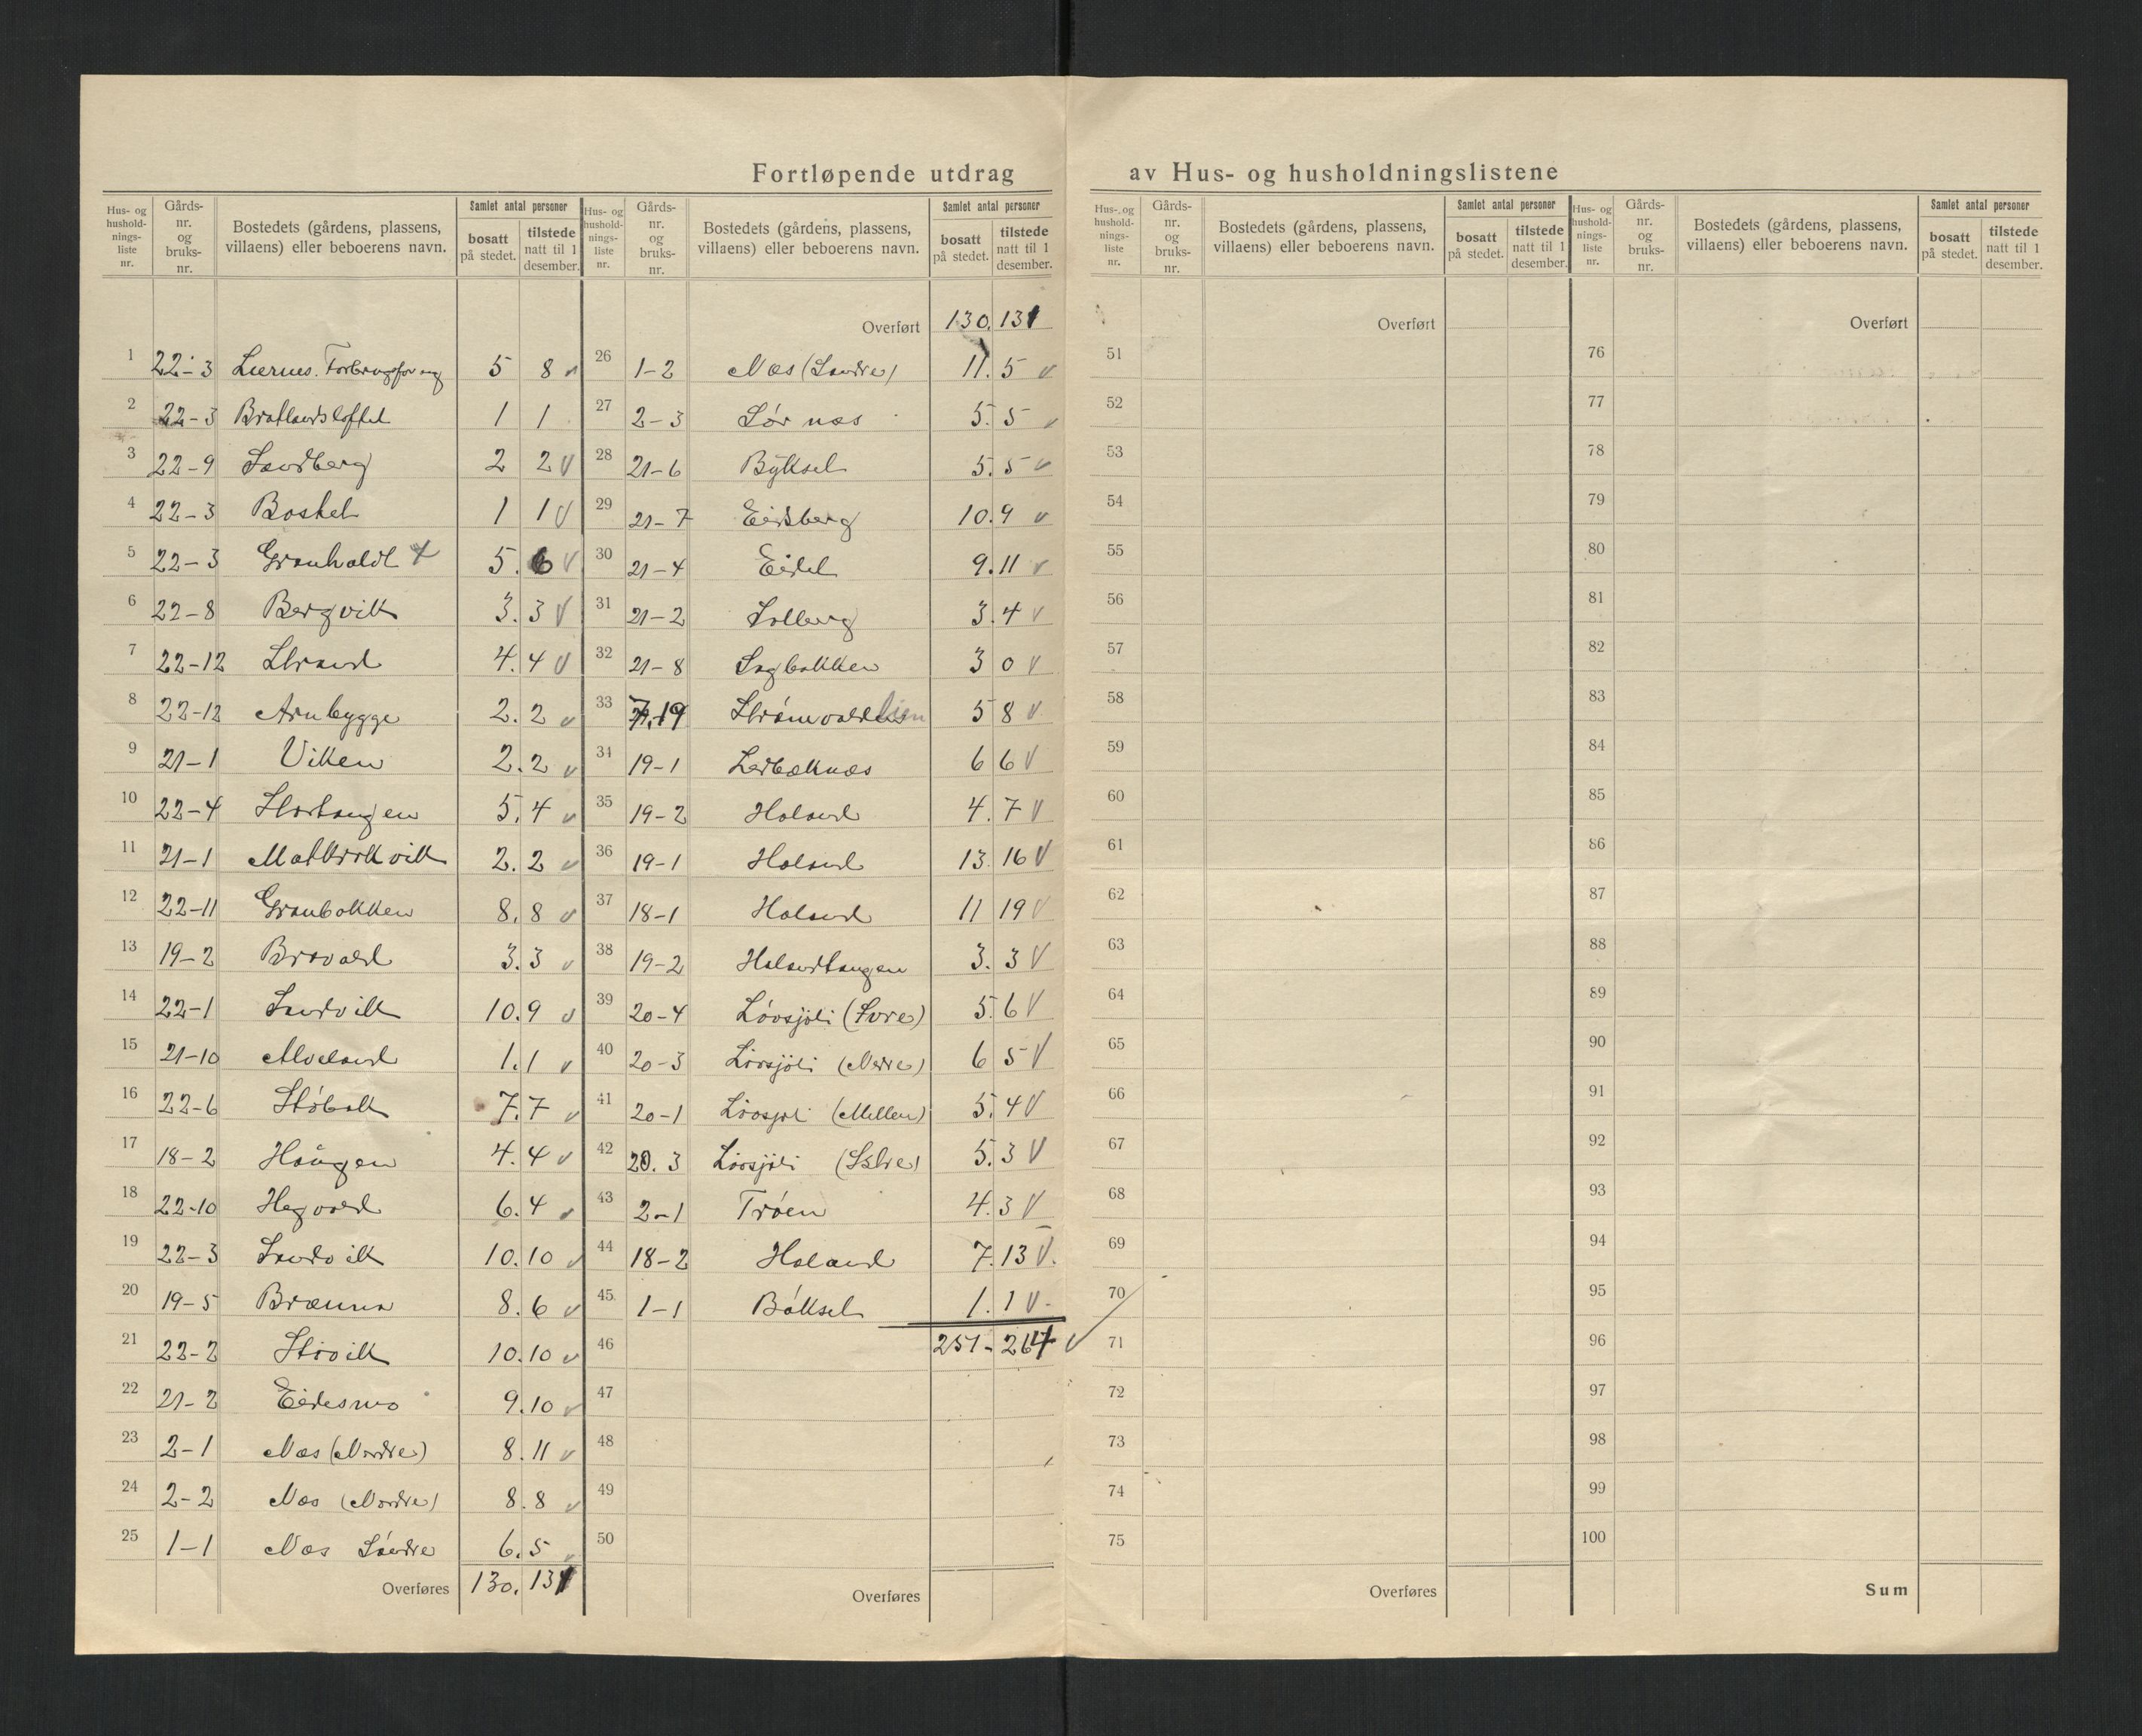 Fortløpende utdrag av Hus- og husholdningslistene
Hus- og hushold-nings-liste nr. | Gårds-nr. og bruks-nr. | Bostedets (gårdens, plassens, villaens) eller beboerens navn. | Samlet antal personer | bosatt på stedet. | tilstede natt til 1 desember.
1 22-3 Lurnes. 5 8 v
2 22-3 Bratlandsloftet 1 1
3 22-9 Sandberg 2 2 v
4 22-3 Bostel 1 1 v
5 22-3 Granholdt + 5. 6 v
6 22-8 Bergvik 3. 3 v
7 22-12 Strand 4. 4 v
8 22-12 Arnbygge 2. 2 v
9 21-1 Viken 2. 2 v
10 22-4 Stortangen 5. 4 v
11 21-1 Matkrokvik 2. 2 v
12 22-11 Granbakken 8. 8 v
13 19-2 Bravold 3. 3 v
14 22-1 Sandvik 10. 9 v
15 21-10 Moeland 1. 1 v
16 22-6 Støbakk 7. 7 v
17 18-2 Haugen 4. 4 v
18 22-10 Hegvold 6. 4 v
19 22-3 Sandvik 10. 10 v
20 19-5 Brænna 8. 6 v
21 22-2 Støvik 10. 10 v
22 21-2 Eidesmo 9. 10 v
23 2-1 Næs (Nordre) 8. 11 v
24 2-2 Næs (Nordre) 8. 8 v
25 1-1 Næs Søndre 6. 5 v
Overføres 130. 131
Hus- og hushold-nings-liste nr. | Gårds-nr. og bruks-nr. | Bostedets (gårdens, plassens, villaens) eller beboerens navn. | Samlet antal personer | bosatt på stedet. | tilstede natt til 1 desember.
Overført 130. 131
26 1-2 Næs (Søndre) 11. 5 v
27 2-3 Sørnæs 5. 5 v
28 21-6 Byksel 5. 5 v
29 21-7 Eidsberg 10. 9 v
30 21-4 Eidet 9. 11 v
31 21-2 Solberg 3. 4 v
32 21-8 Sagbakken 3 0 v
33 7.19 5 8 v
34 19-1 Lerbæknæs 6 6 v
35 19-2 Holand 4. 7 v
36 19-1 Holand 13. 16 v
37 18-1 Holand 11 19 v
38 19-2 Holandtangen 3. 3 v
39 20-4 Løvsjøli (Søre) 5. 6 v
40 20-3 Løvsjøli (Nedre) 6 5 v
41 20-1 Løvsjøli (Mellem) 5. 4 v
42 20.3 Løvsjøli 5. 3 v
43 2-1 Trøen 4. 3 v
44 18-2 Holand 7. 13 v.
45. 1-1 Bøksel 1. 1 v-
46 251 - 264 v
47
48
49
50
Overføres
Hus- og hushold-nings-liste nr. | Gårds-nr. og bruks-nr. | Bostedets (gårdens, plassens, villaens) eller beboerens navn. | Samlet antal personer | bosatt på stedet. | tilstede natt til 1 desember.
Overført
51
52
53
54
55
56
57
58
59
60
61
62
63
64
65
66
67
68
69
70
71
72
73
74
75
Overføres
Hus- og hushold-nings-liste nr. | Gårds-nr. og bruks-nr. | Bostedets (gårdens, plassens, villaens) eller beboerens navn. | Samlet antal personer | bosatt på stedet. | tilstede natt til 1 desember.
Overført
76
77
78
79
80
81
82
83
84
85
86
87
88
89
90
91
92
93
94
95
96
97
98
99
100
Sum